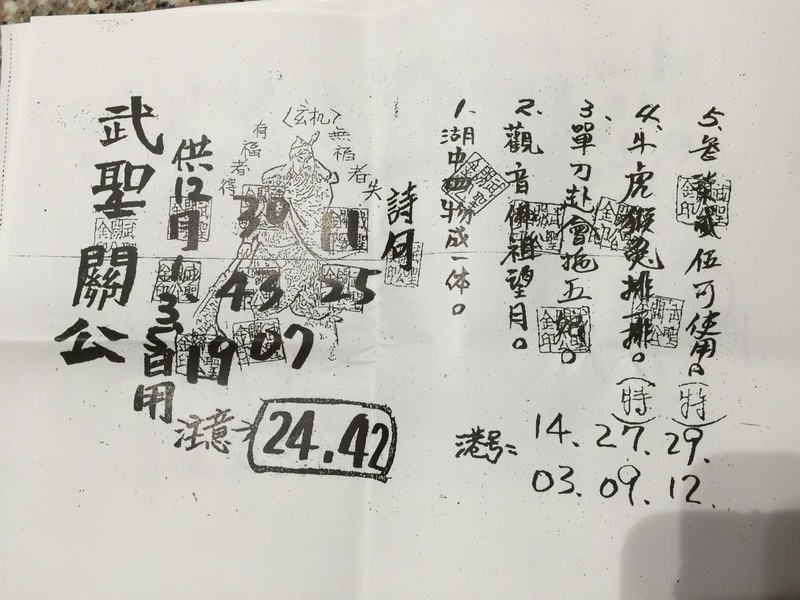 武聖關公
供12月1、3、5自用
〈玄机〉
有福者得
無福者失
30 11
43 25
19 07
注意
24.42
詩句
1.湖中四物成一体。
2.觀音佛祖望月。
3.單刀赴會拖五
4.牛虎猴兔排一排。(特)
5.叁伍可使用。(特)
港号:
14. 27. 29.
03. 09. 12.